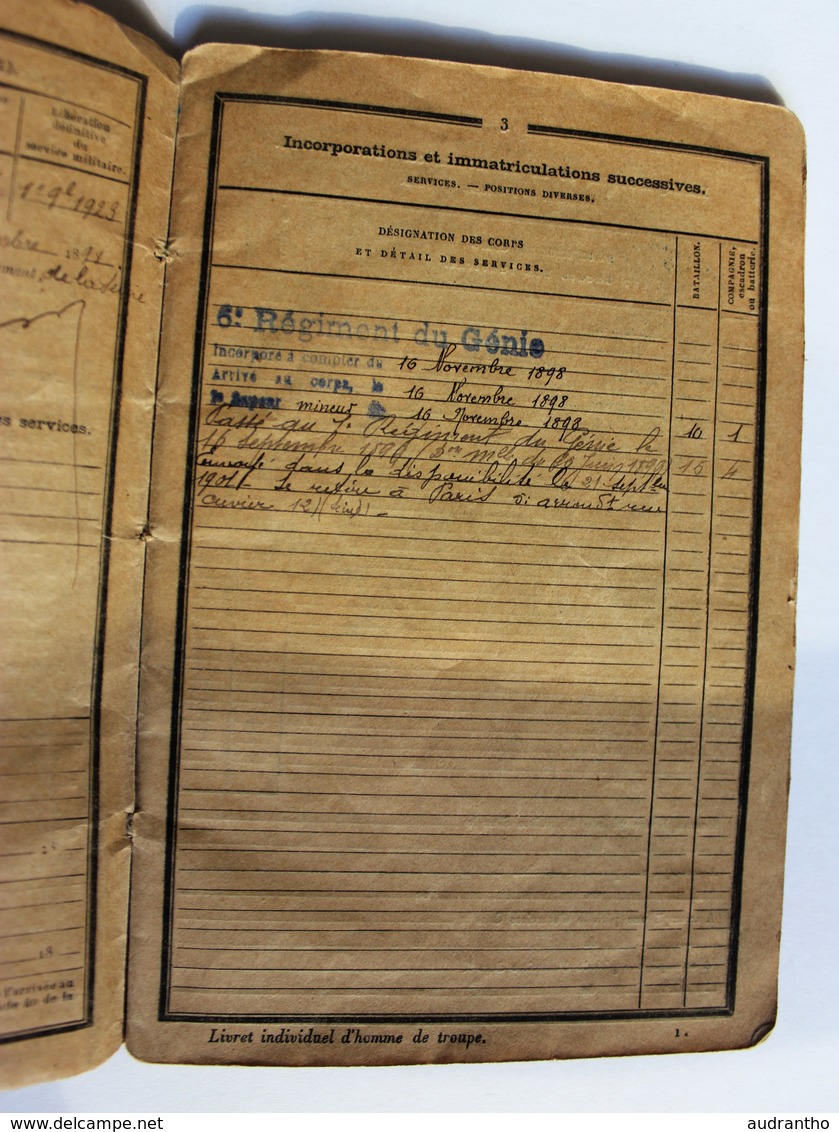 Libération
définitive
du
service militaire.
1923
de la Seine
es services.
18
3
Incorporations et immatriculations successives.
SERVICES. — POSITIONS DIVERSES.
DÉSIGNATION DES CORPS
ET DÉTAIL DES SERVICES.
BATAILLON.
COMPAGNIE,
escadron
ou batterie.
6e Régiment du Génie
Incorporé à compter du 16 Novembre 1898
Arrivé au corps, le 16 Novembre 1898
Sapeur mineur 16 Novembre 1898 10 1
Passé au Régiment du Génie le
16 Septembre 15 4
Envoyé dans la disponibilité le 21 septbre
1901. Se retire à Paris 5e arrondt rue
Cuvier 12
Livret individuel d'homme de troupe.
1.
www.delcampe.net
audrantho